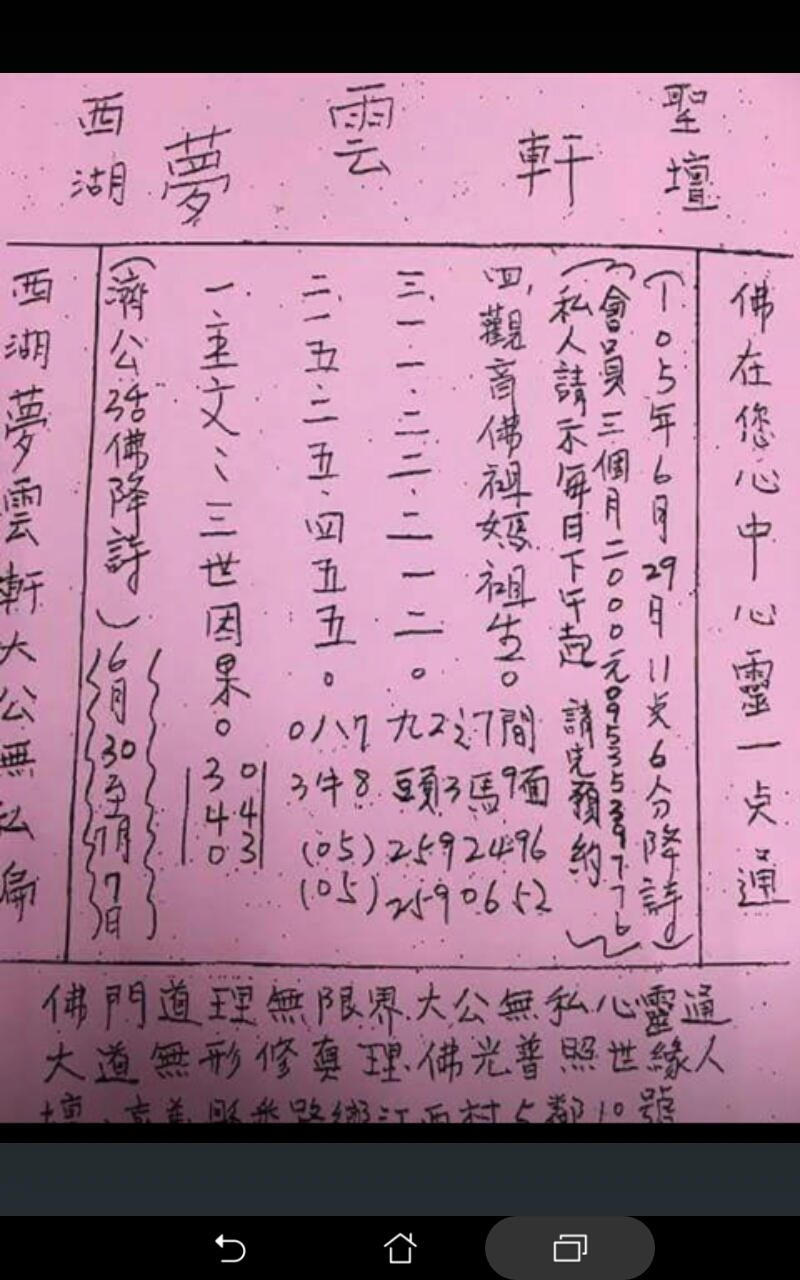 西湖 夢雲軒 聖壇
西湖夢雲軒大公無私
(濟公活佛降詩)
6月30至7月7日
一、主文、三世因果。
30
44
03
二、一五、二五、四五五。
三、一一、二二、二一二。
四、觀音佛祖媽祖生。
3牛8頭3馬9面
(05)2592496
(05)2590652
(私人請示每日下午起 請先預約
會員三個月二000元0953539776)
(105年6月29日11点6分降詩)
佛在您心中心靈一点通
佛門道理無限界.大公無私心靈通
大道無形修真理.佛光普照世緣人